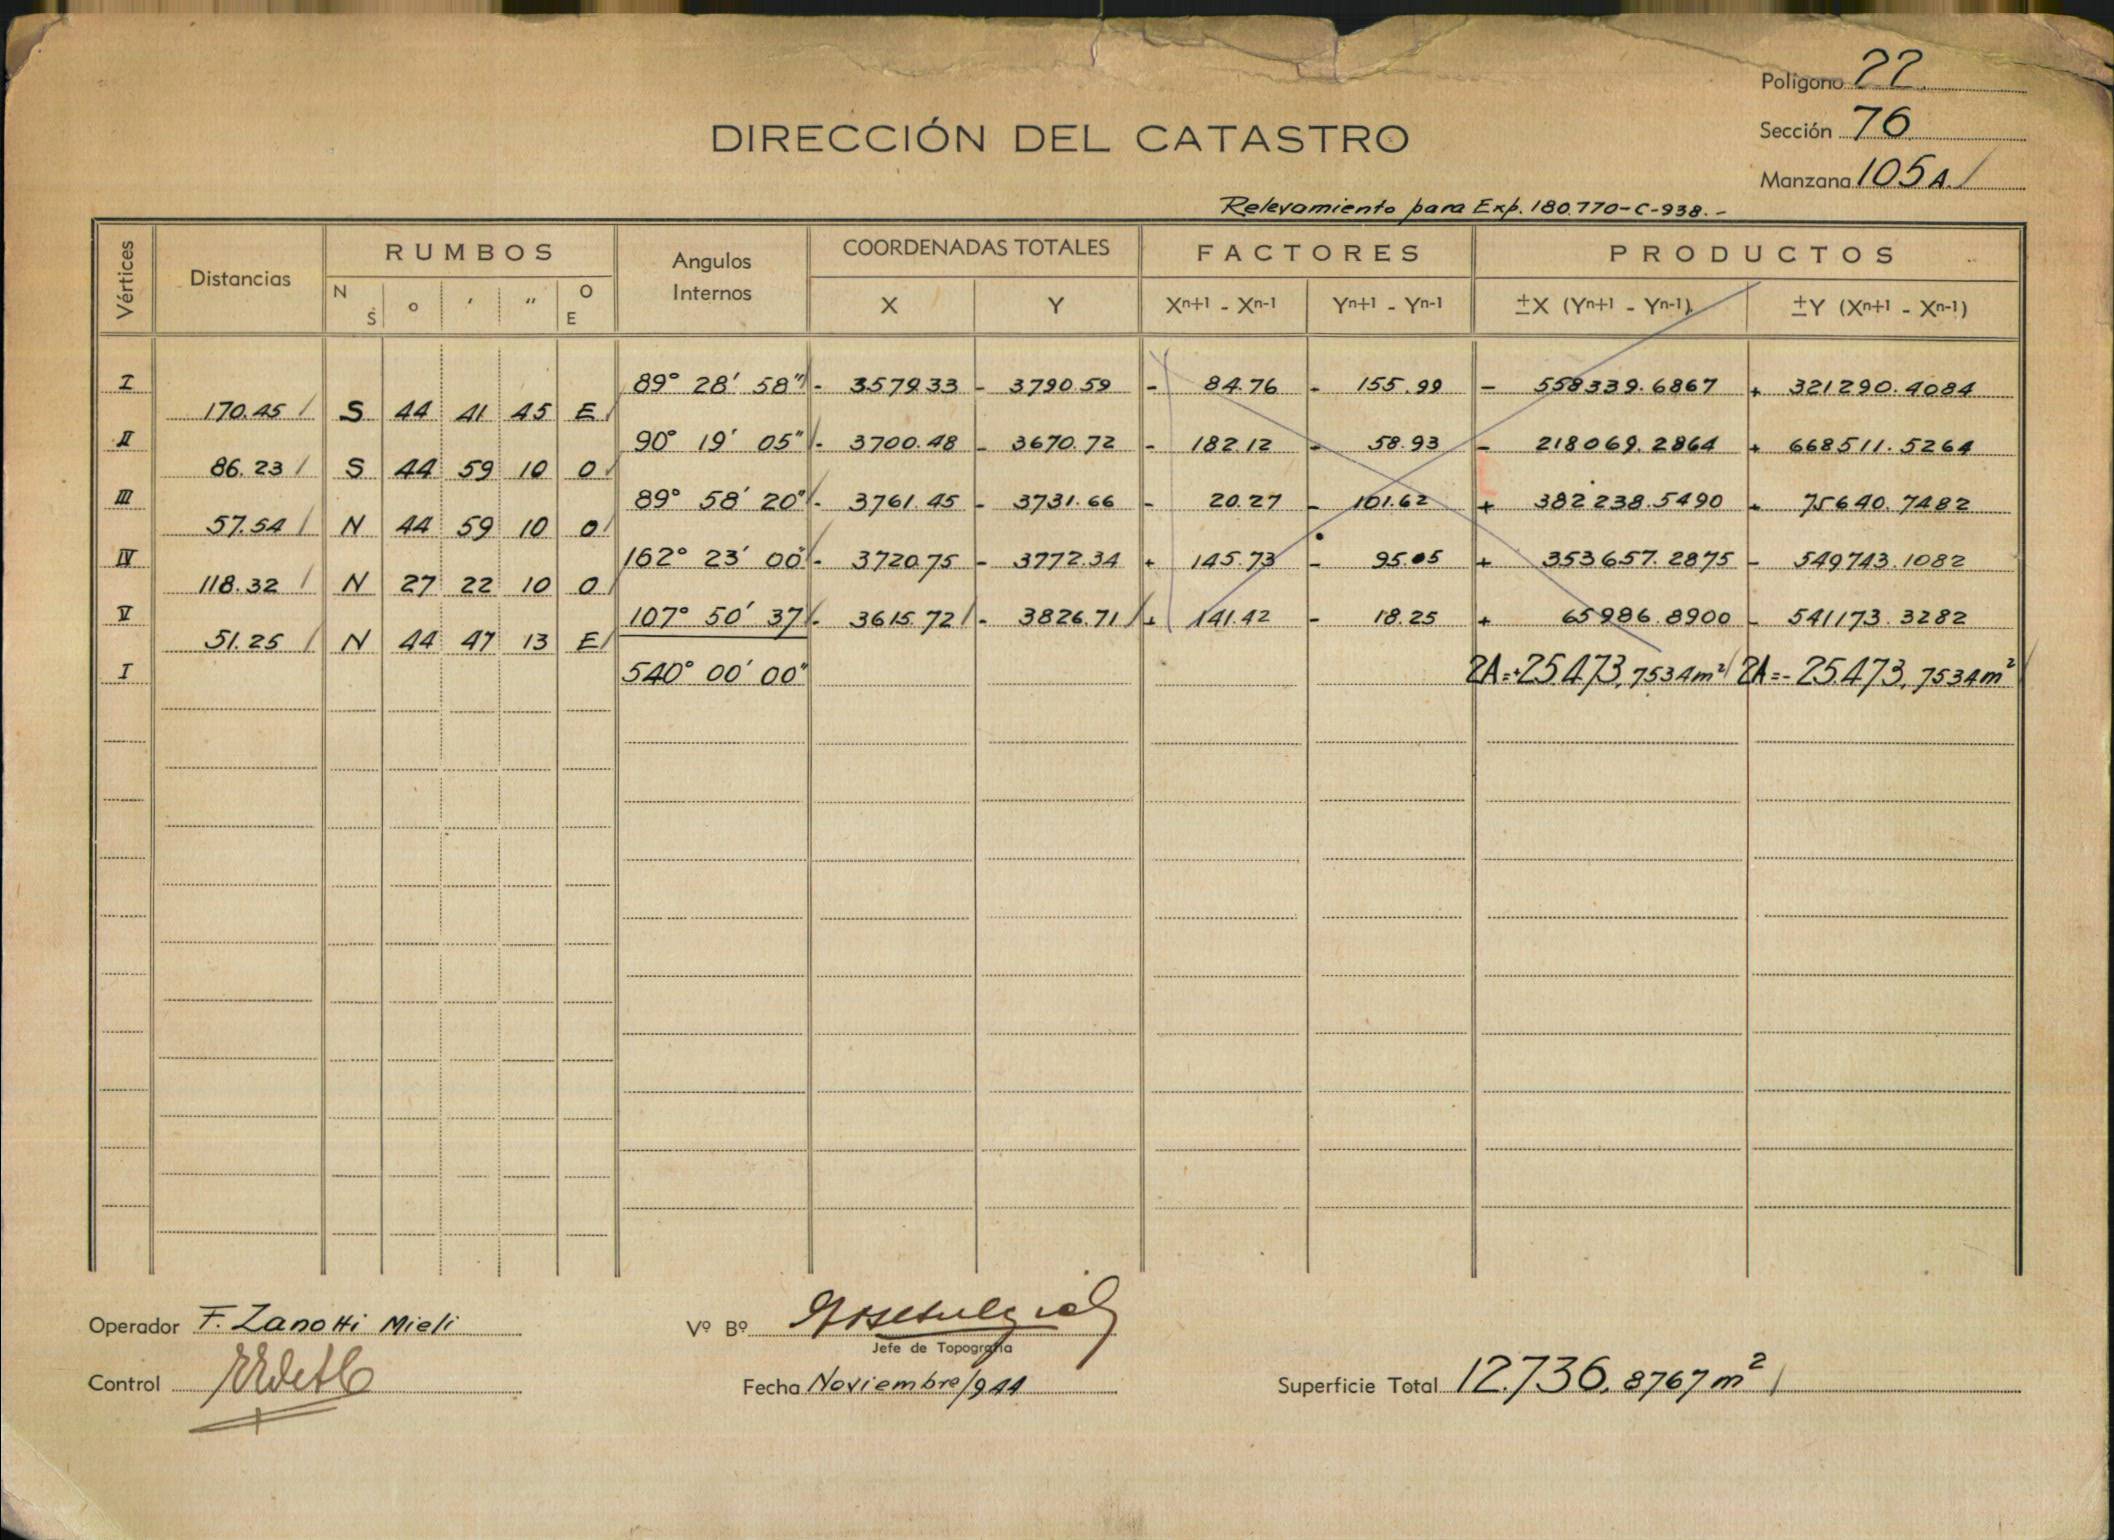 Polígono 22.
Sección 76
Manzana 105 A.
DIRECCIÓN DEL CATASTRO
Relevamiento para Exp. 180.770-C-938.-
Vértices Distancias RUMBOS Angulos Internos COORDENADAS TOTALES FACTORES PRODUCTOS
N S o ′ ″ O E X Y Xn+1 - Xn-1 Yn+1 - Yn-1 ±X (Yn+1 - Yn-1) ±Y (Xn+1 - Xn-1)
I 89° 28′ 58″ - 3579.33 - 3790.59 - 84.76 - 155.99 - 558339.6867 + 321290.4084
170.45 S 44 41 45 E
II 90° 19′ 05″ - 3700.48 - 3670.72 - 182.12 - 58.93 - 218069.2864 + 668511.5264
86.23 S 44 59 10 O
III 89° 58′ 20″ - 3761.45 - 3731.66 - 20.27 - 101.62 + 382238.5490 + 75640.7482
57.54 N 44 59 10 O
IV 162° 23′ 00″ - 3720.75 - 3772.34 + 145.73 - 95.05 + 353657.2875 - 549743.1082
118.32 N 27 22 10 O
V 107° 50′ 37 - 3615.72 - 3826.71 + 141.42 - 18.25 + 65986.8900 - 541173.3282
51.25 N 44 47 13 E
I 540° 00′ 00″ 2A=+25.473,7534m² 2A=-25.473,7534m²
Operador F. Zanotti Mieli
Vº Bº
Jefe de Topografía
Control
Fecha Noviembre/944
Superficie Total 12.736,8767m²